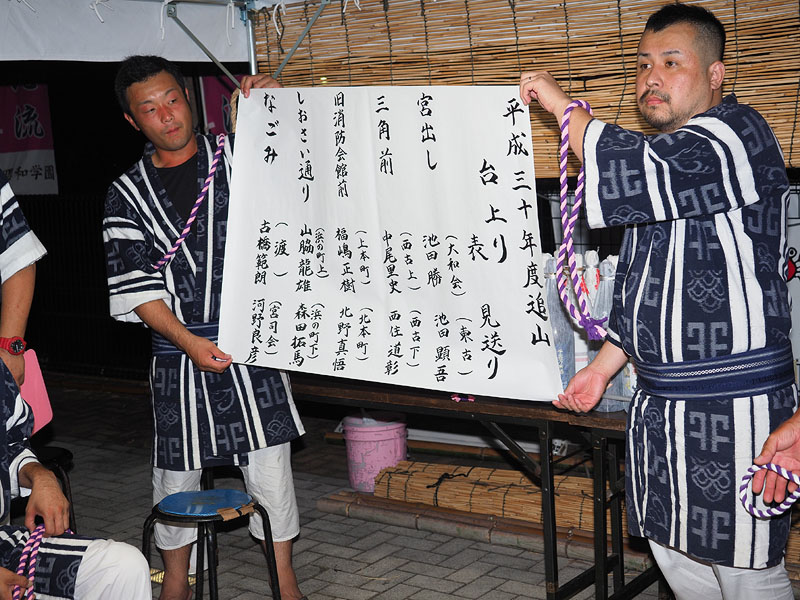 平成三十年度追山
台上り
表
見送り
宮出し
(大和会)
池田 勝
(東古)
池田顕吾
三角前
(西古上)
中尾里史
(西古下)
西住道彰
旧消防会館前
(上本町)
福嶋正樹
(北本町)
北野真悟
しおさい通り
(浜の町上)
山脇龍雄
(浜の町下)
森田拓馬
なごみ
(渡)
古橋範朗
(宮司会)
河野良彦
流
和学園